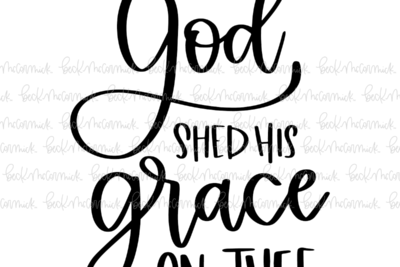 God
SHED HIS
grace
ON THEE